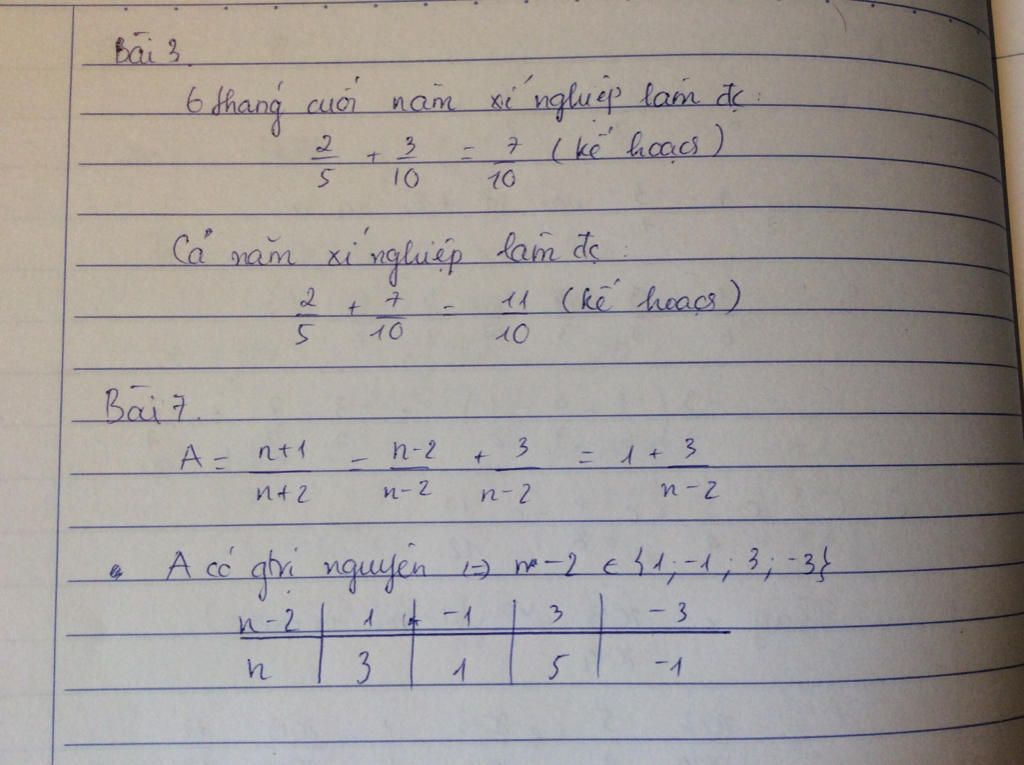 Bài 3.
6 tháng cuối năm xí nghiệp làm đc :
2/5 + 3/10 = 7/10 (kế hoạcs)
Cả năm xí nghiệp làm đc :
2/5 + 7/10 = 11/10 (kế hoạcs)
Bài 7.
A = n+1/n+2 = n-2/n-2 + 3/n-2 = 1 + 3/n-2
• A có gtrị nguyên (=) n-2 ∈ {1; -1; 3; -3}
n-2 | 1 | -1 | 3 | -3
n | 3 | 1 | 5 | -1